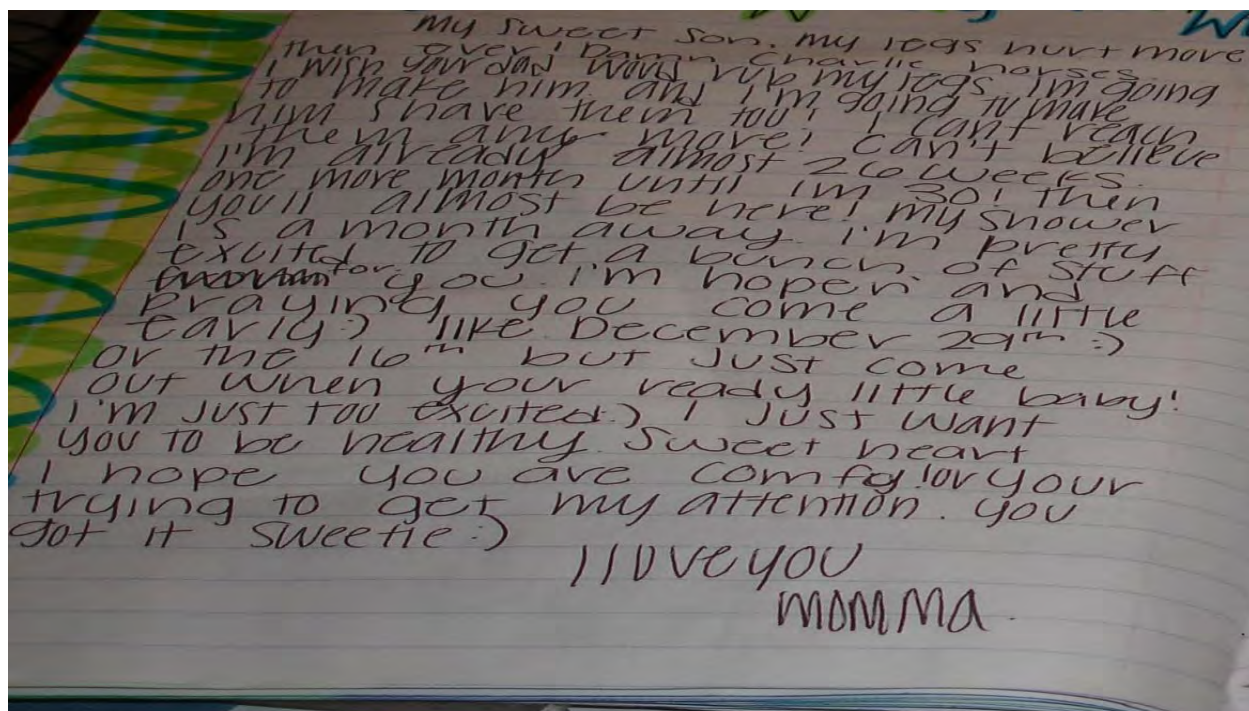 my sweet son. my legs hurt more
then ever! Damn charlie horses.
I wish your dad would rub my legs. I'm going
to make him. and I'm going to make
him shave them too! I can't reach
them any more! can't believe
I'm already almost 26 weeks.
one more month until im 30! Then
you'll almost be here! my shower
is a month away. I'm pretty
excited to get a bunch of stuff
for you. I'm hopen and
praying you come a little
early:) like December 29th :)
or the 16th but just come
out when your ready little baby!
I'm just too excited:) I just want
you to be healthy sweet heart
I hope you are comfy! or your
trying to get my attention. you
got it sweetie :)
I love you
momma.